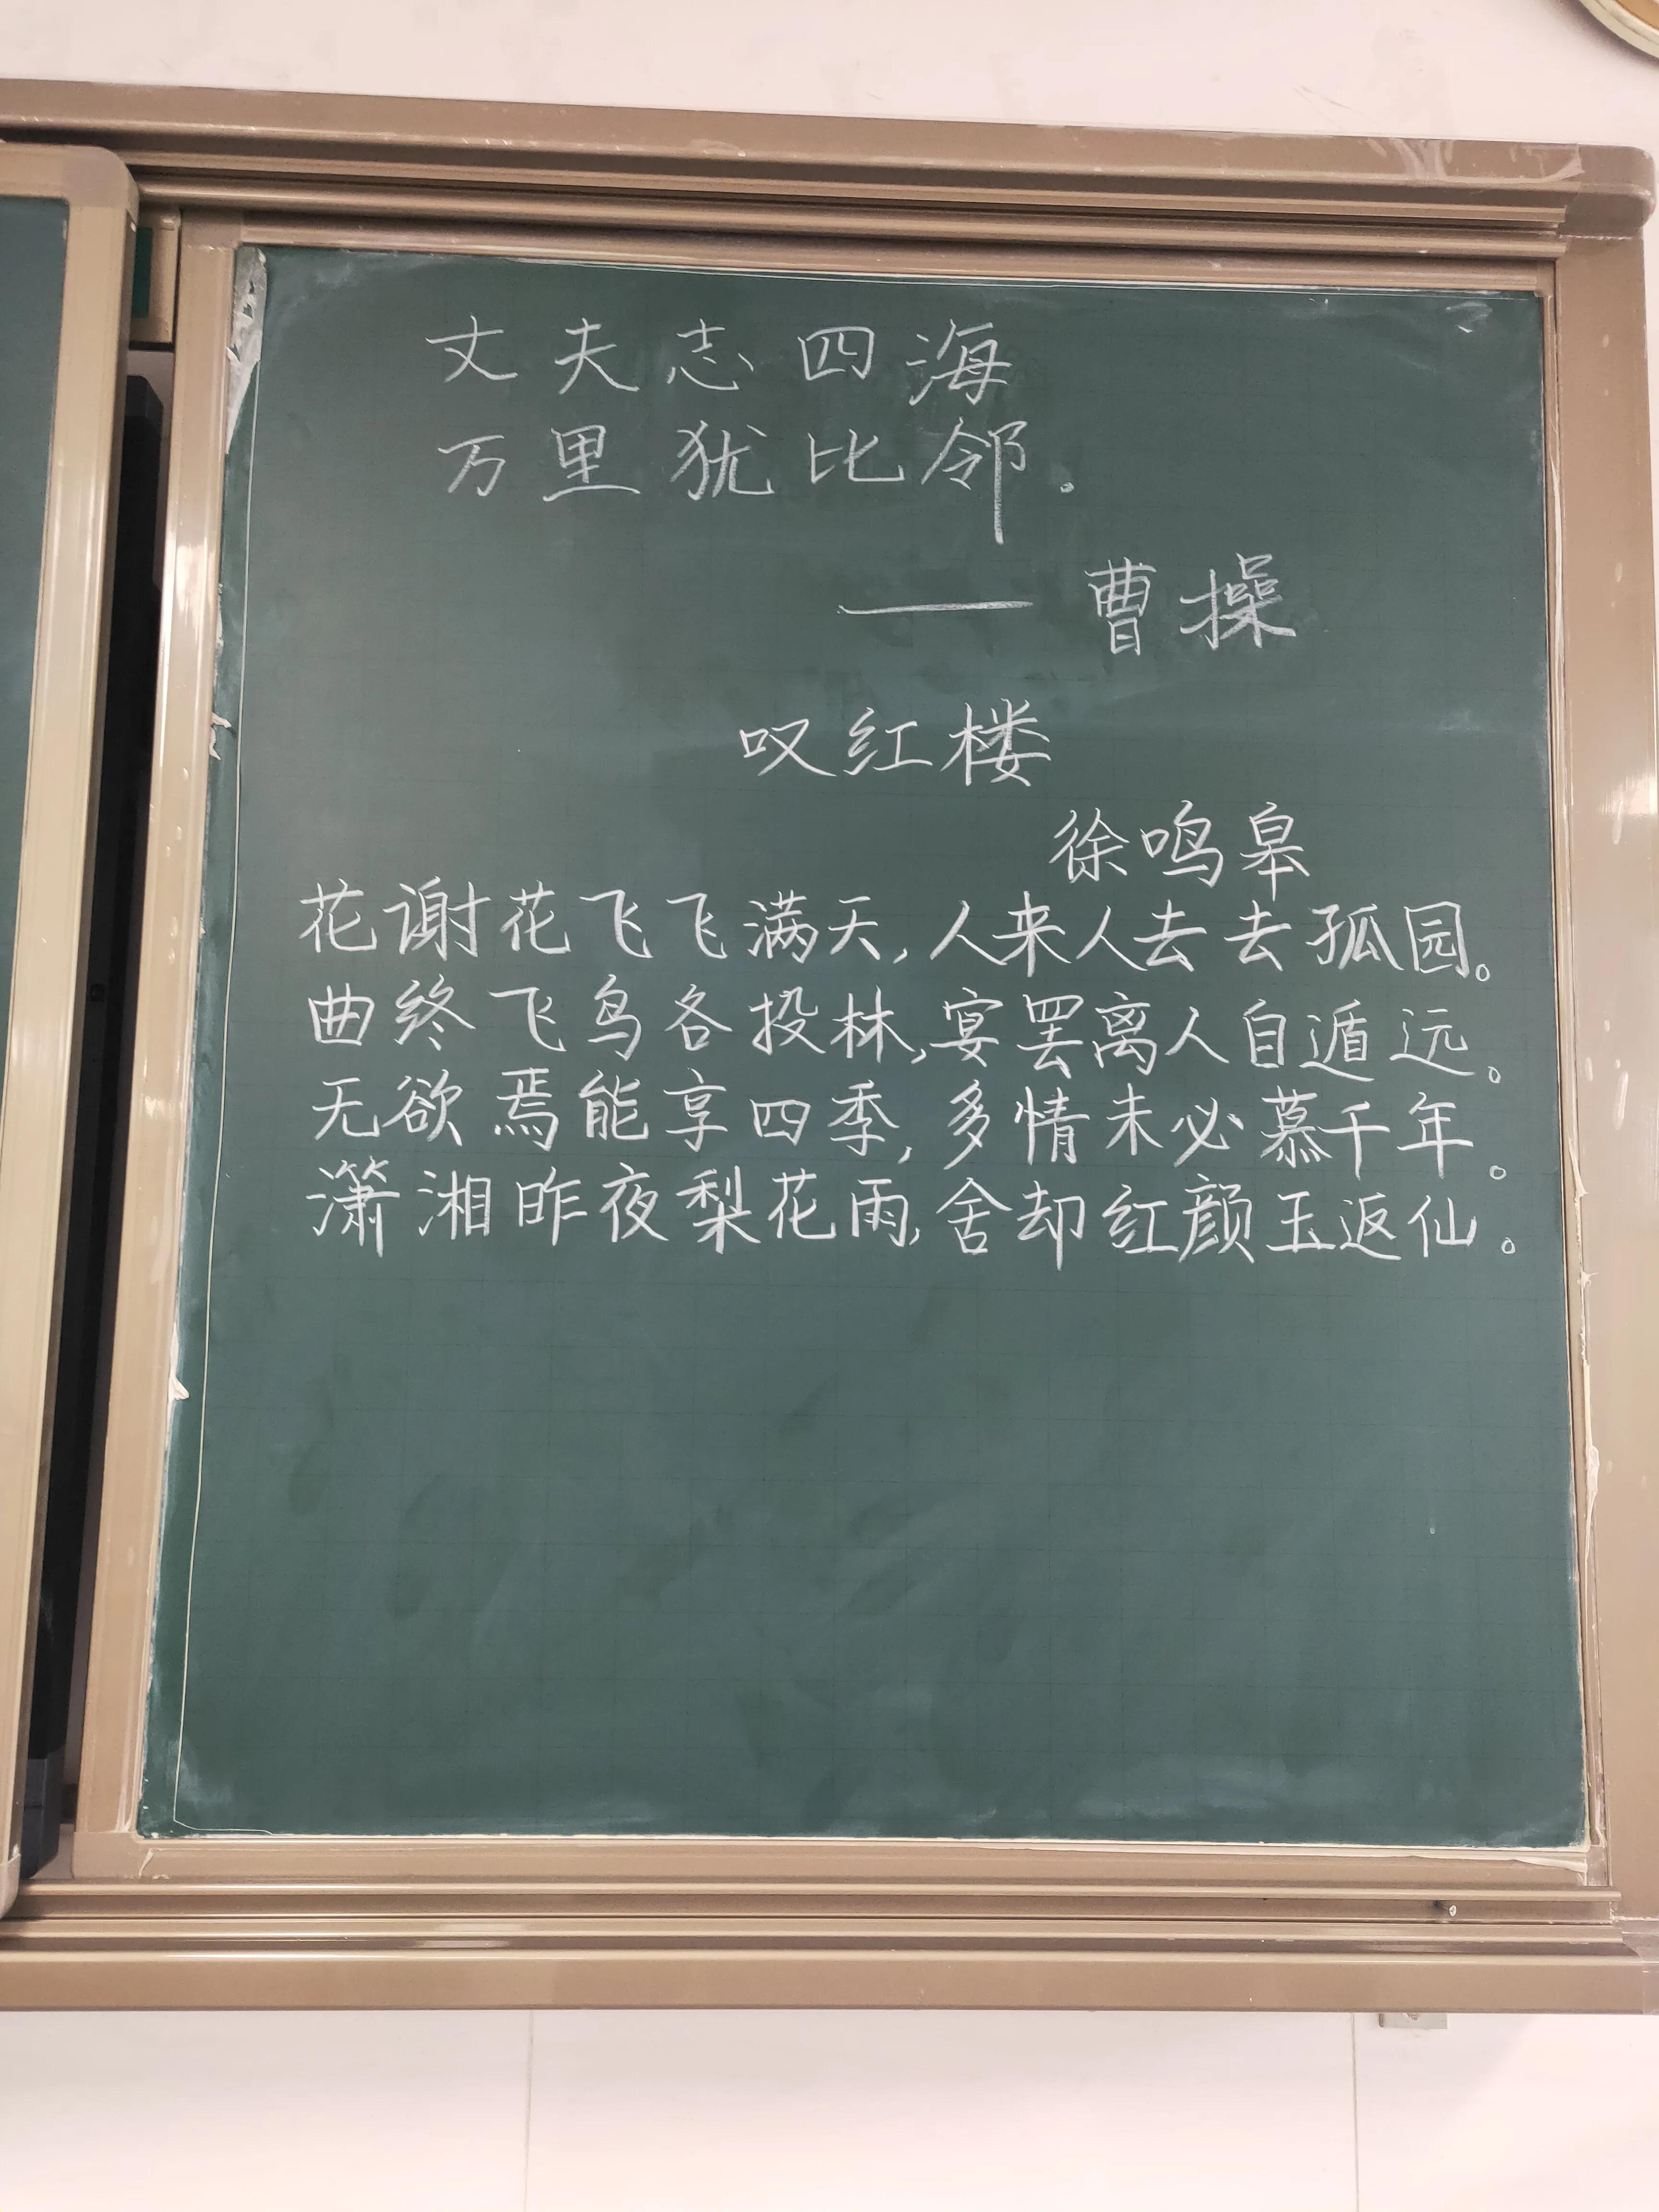 丈夫志四海
万里犹比邻。
——曹操
叹红楼
徐鸣皋
花谢花飞飞满天,人来人去去孤园。
曲终飞鸟各投林,宴罢离人自遁远。
无欲焉能享四季,多情未必慕千年。
潇湘昨夜梨花雨,舍却红颜玉返仙。